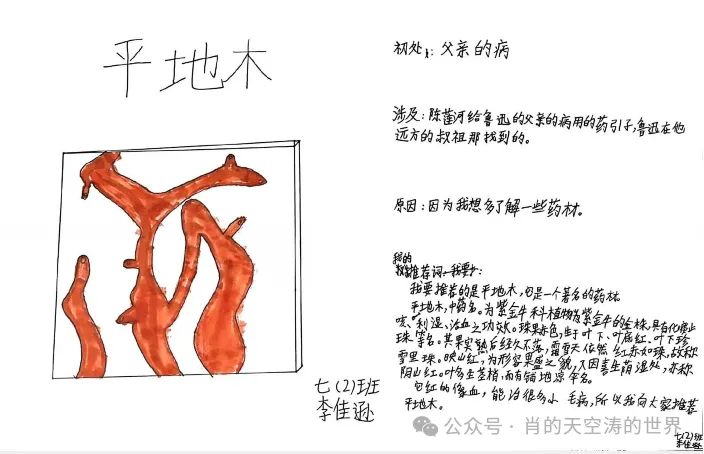 平地木
七(2)班
李佳逊
初处:父亲的病
涉及:陈莲河给鲁迅的父亲的病用的药引子,鲁迅在他
远方的叔祖那找到的。
原因:因为我想多了解一些药材。
我的
推荐词:
我要推荐的是平地木,它是一个著名的药材。
平地木,中药名。为紫金牛科植物紫金牛的全株,具有化痰止
咳、利湿、活血之功效。珠果赤色,生于叶下、叶底红、叶下珍
珠等名。其果实熟后经久不落,霜雪天依然红赤如珠,故称
雪里珠。映山红,为形容果盛之貌,又因喜生荫湿处,亦称
阴山红。叶多生茎梢,而有铺地凉伞名。
它红的像血,能治很多小毛病,所以我向大家推荐
平地木。
七(2)班
李佳逊
公众号·肖的天空涛的世界